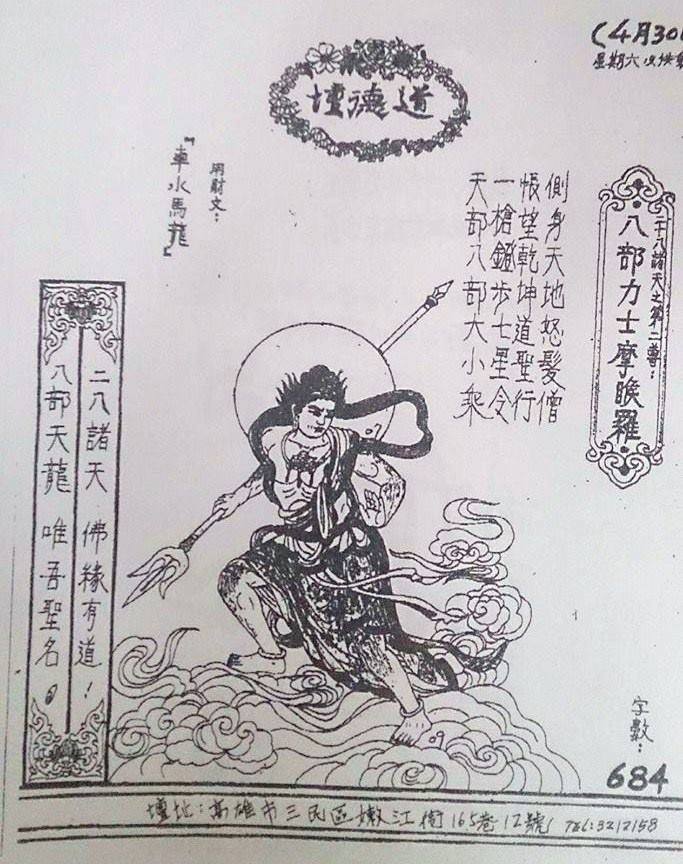 (4月30
星期六
道德壇
二十八諸天之第二尊：
·八部力士摩睺羅·
側身天地怒髮僧
帳望乾坤道聖行
一槍鐙步七星令
天部八部大小乘
用財文：
『車水馬龍』
二八諸天 佛緣有道！
八部天龍 唯吾聖名。
字數：
684
壇址：高雄市三民區嫩江街165巷12號 TEL:3212158